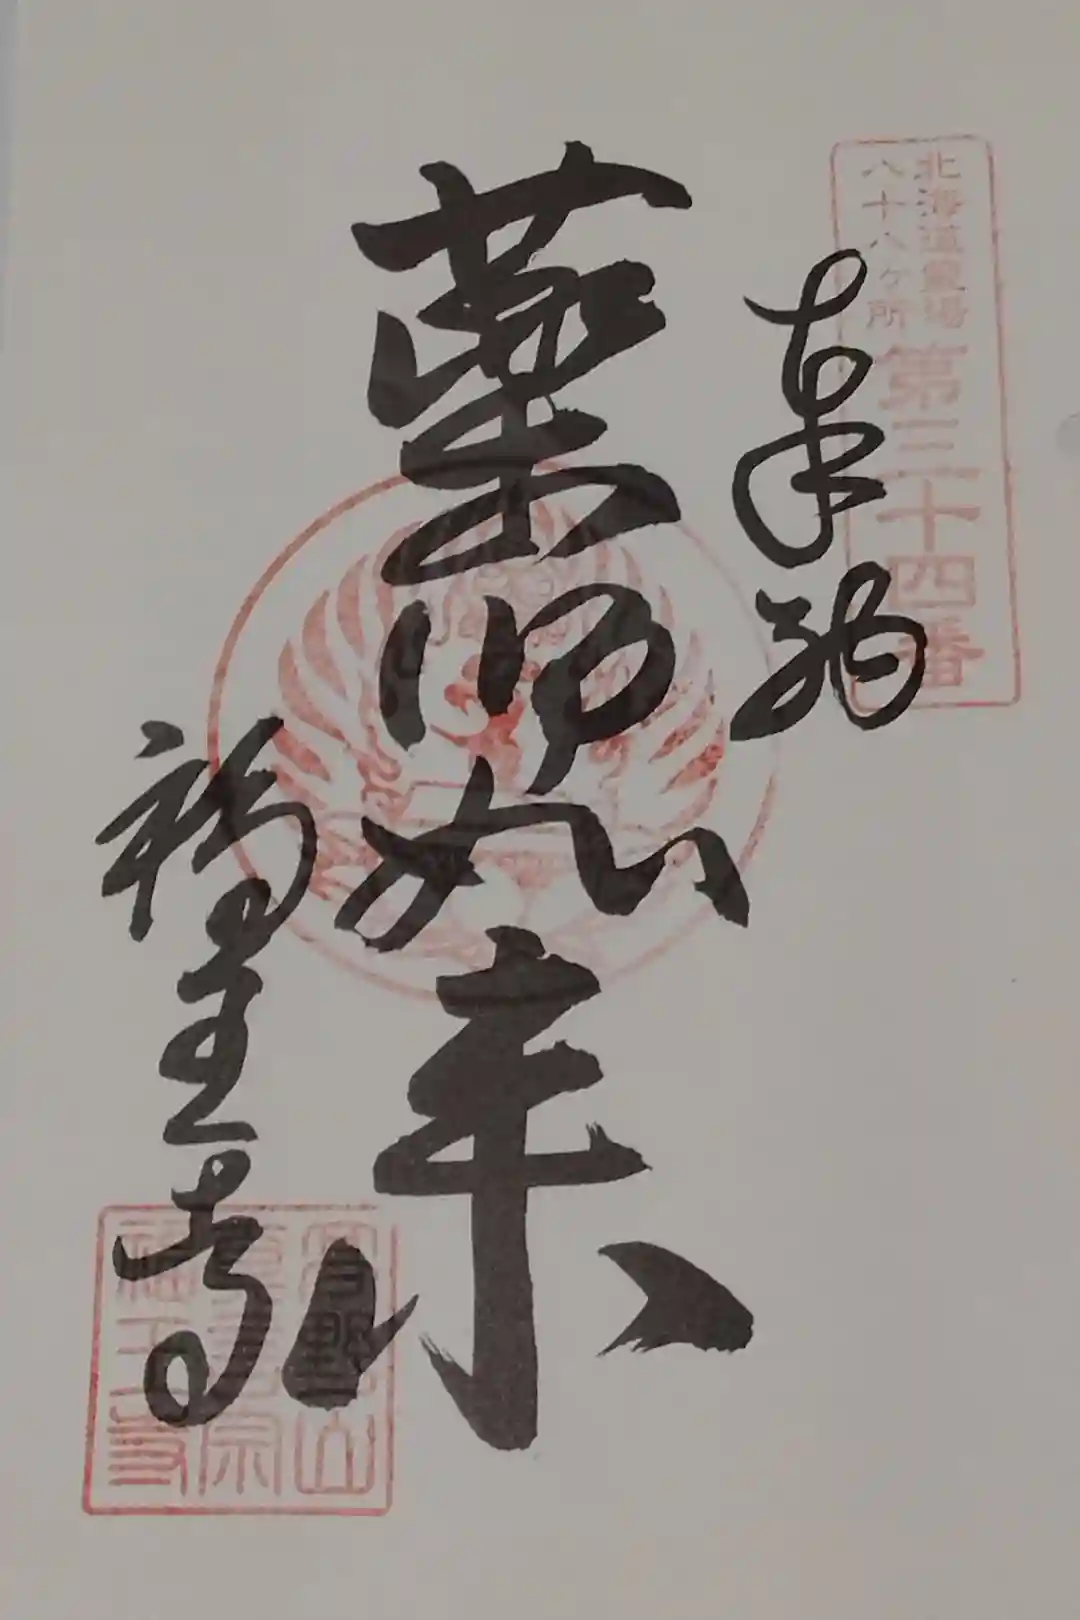 北海道霊場
八十八ヶ所
第三十四番
奉納
薬師如来
福王寺
高野山
真言宗
福王寺